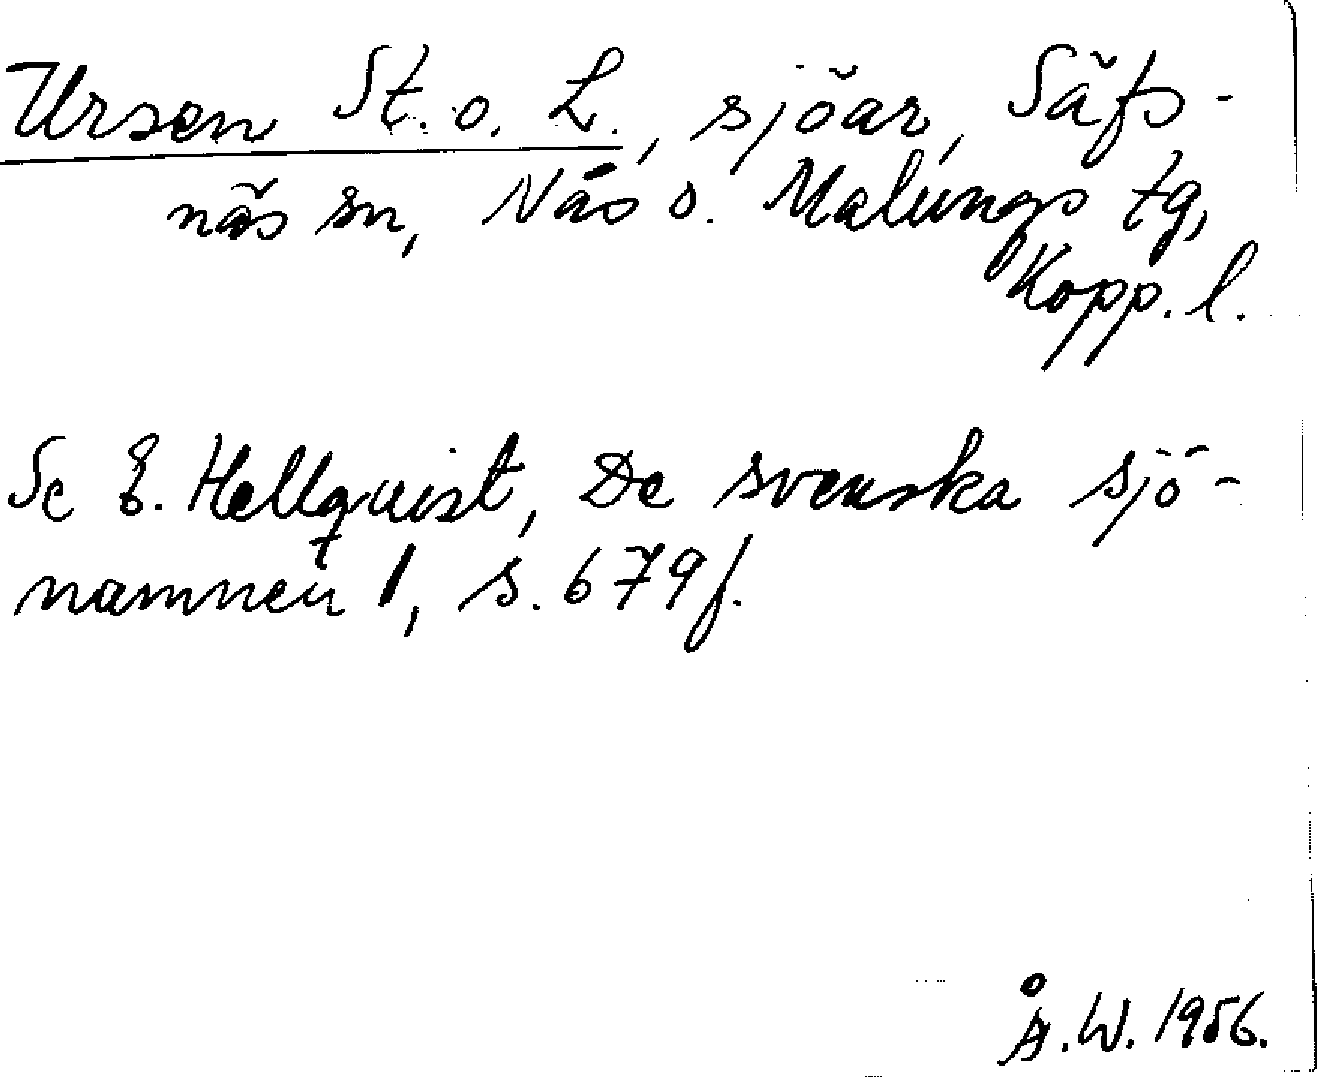 Ursen St. o. L., sjöar, Säfs-
näs sn, Nås o. Malungs tg,
Kopp. l.
Se E. Hellquist, De svenska sjö-
namnen 1, s. 679 f.
Å. W. 1956.